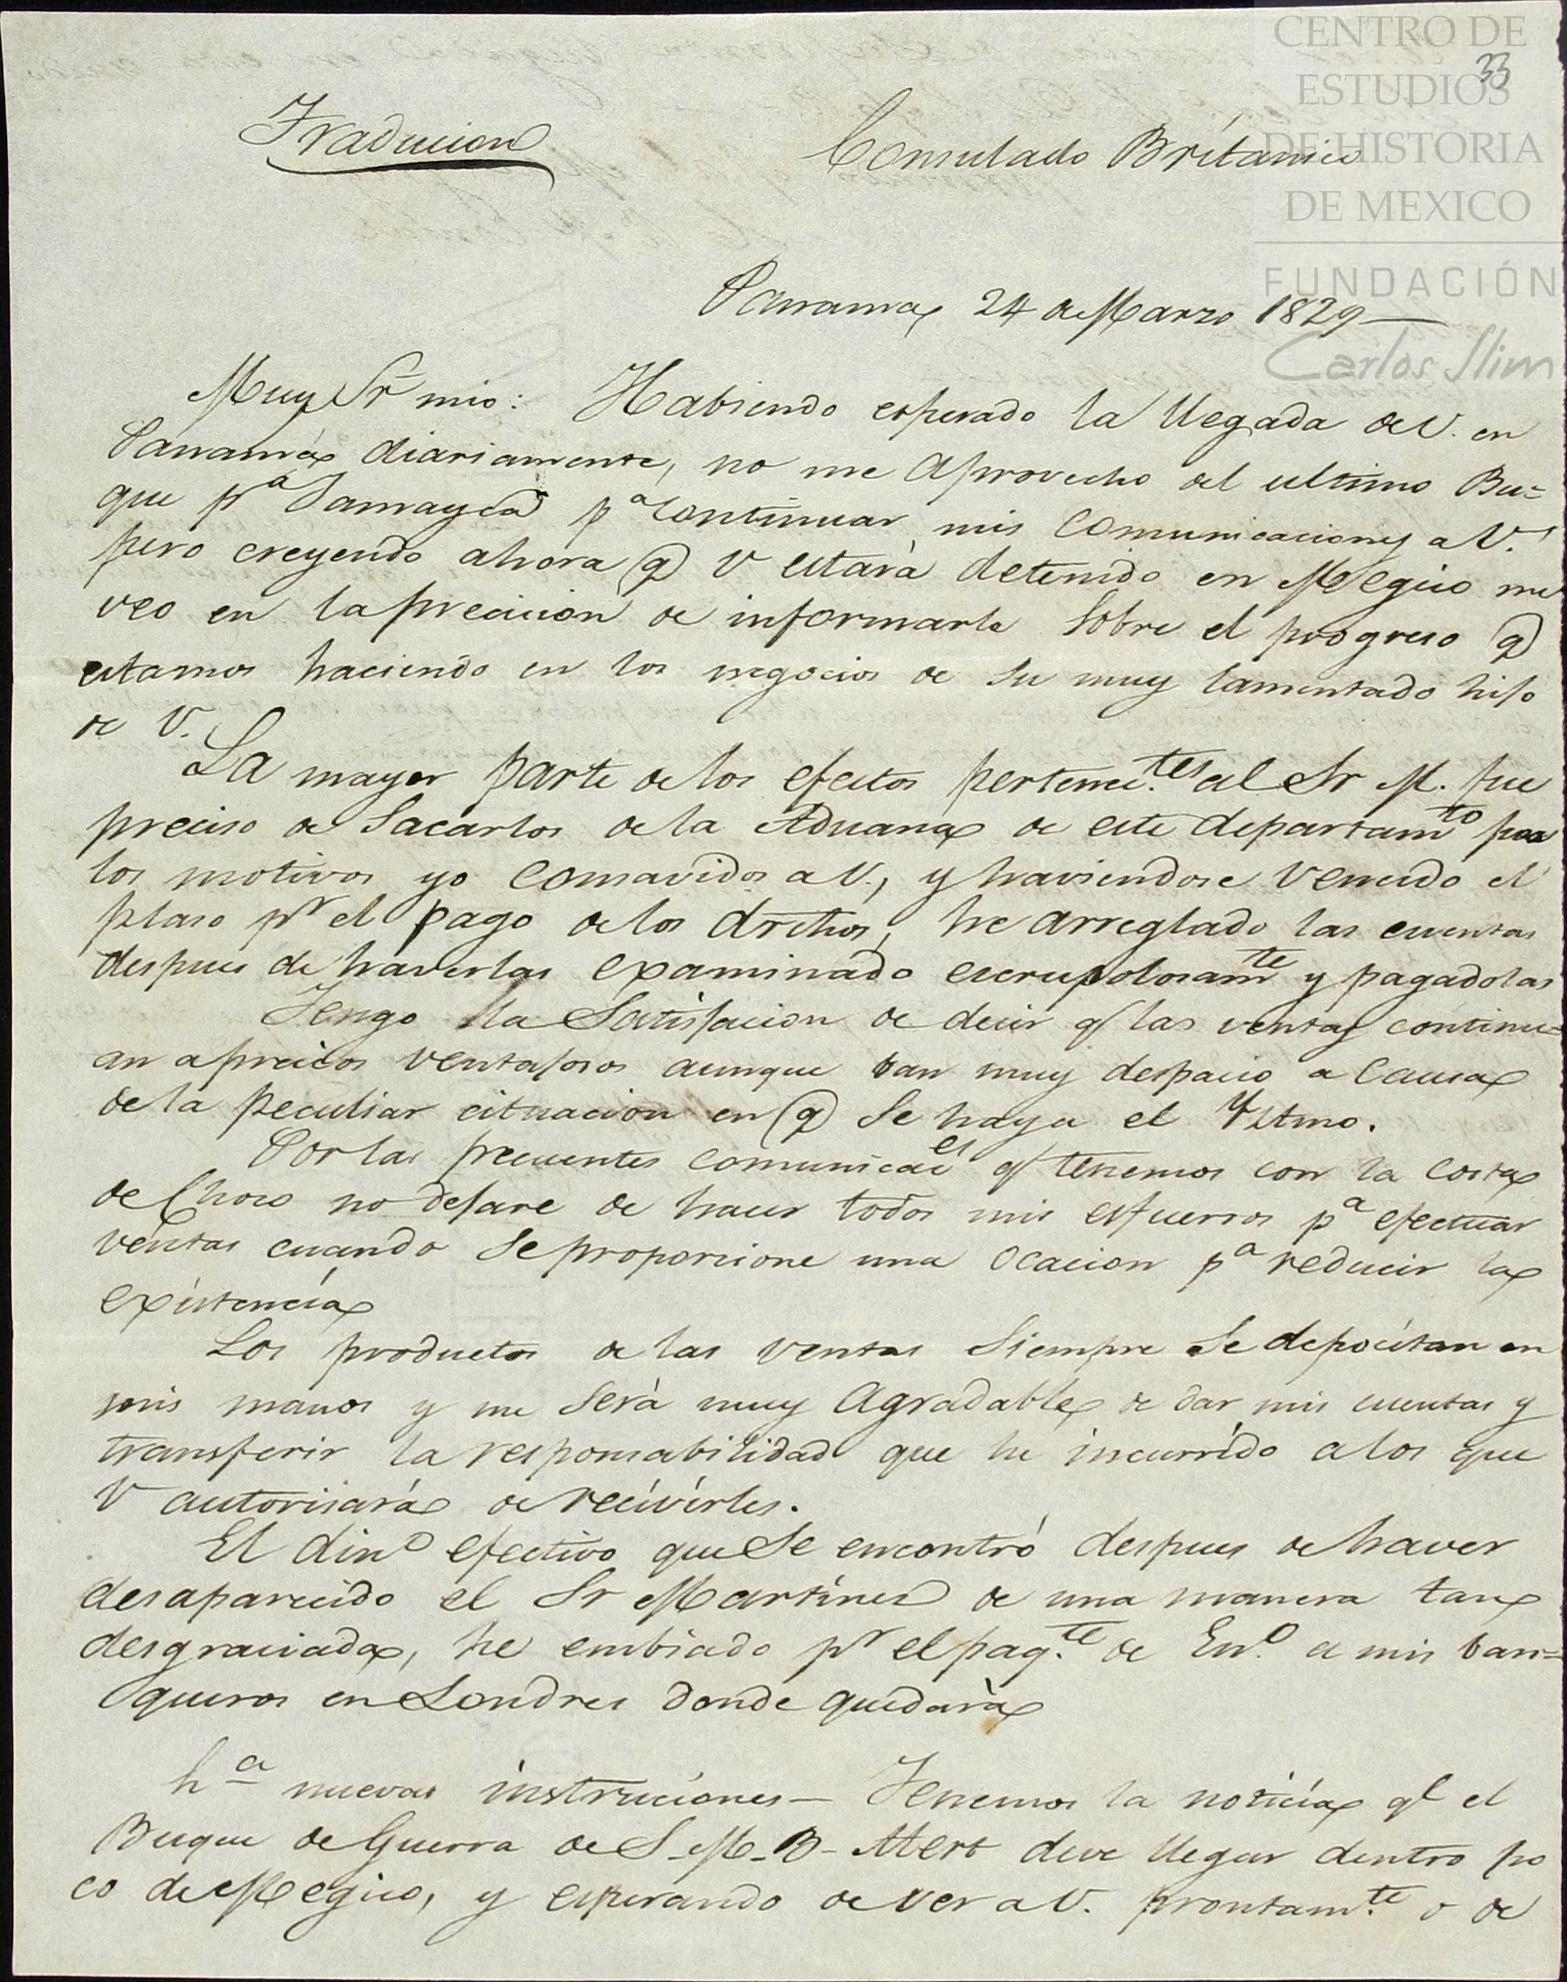 CENTRO DE
ESTUDIOS
DE HISTORIA
DE MEXICO
FUNDACIÓN
Carlos Slim
33
Traducion
Consulado Británico
Panama 24 de Marzo 1829
Muy Sr mio: Habiendo esperado la llegada de V. en
Panamá diariamente, no me aprovecho del ultimo Bu=
que pa Jamayca pa continuar mis comunicaciones a V.
pero creyendo ahora q V estará detenido en Megico me
veo en la precicion de informarle sobre el progreso q
estamos haciendo en los negocios de su muy lamentado hijo
de V.
La mayor parte de los efectos perteneci.tes al Sr M. fue
preciso de sacarlos de la Aduana de este departamto por
los motivos yo a V., y haviendose vencido el
plaso pr el pago de los drechos, he arreglado las cuentas
despues de haverlas examinado escrupolosamte y pagadolas
Tengo la satisfacion de decir q las ventas continu=
an a precios ventajosos aunque van muy despacio a causa
de la peculiar cituacion en q se haya el Ystmo.
Por las frecuentes comunicaces q tenemos con la costa
de Choco no dejare de hacer todos mis esfuersos pa efectuar
ventas cuando se proporcione una ocacion pa reducir la
existencia
Los productos de las ventas siempre se depocitan en
mis manos y me será muy agradable de dar mis cuentas y
transferir la responsabilidad que he incurrido a los que
V autorisará de recivirles.
El dino efectivo que se encontró despues de haver
desaparecido el Sr Martines de una manera tan
desgraciada, he embiado pr el paq.te de En.o a mis ban=
queros en Londres donde quedará
ha nuevas instruciones — Tenemos la noticia ql el
Buque de Guerra de S. M. B. Alert deve llegar dentro po
co de Megico, y esperando de ver a V. prontam.te o de